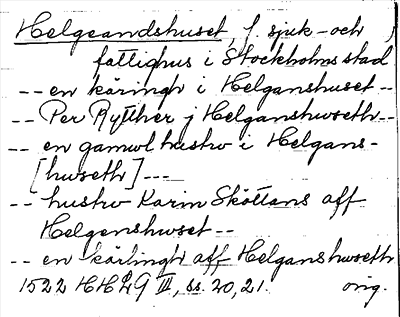 Helgeandshuset, f. sjuk- och
fattighus i Stockholms stad
-- en käringh i Helganshuset --
-- Per Rytther j Helganshwseth --
-- en gamol hustrv i Helgans-
[hwseth] ---
-- hustrv Karin Sköttans aff
Helgenshwset --
-- en kärlingh aff Helganshwseth
1522 HH III, ss. 20, 21. orig.